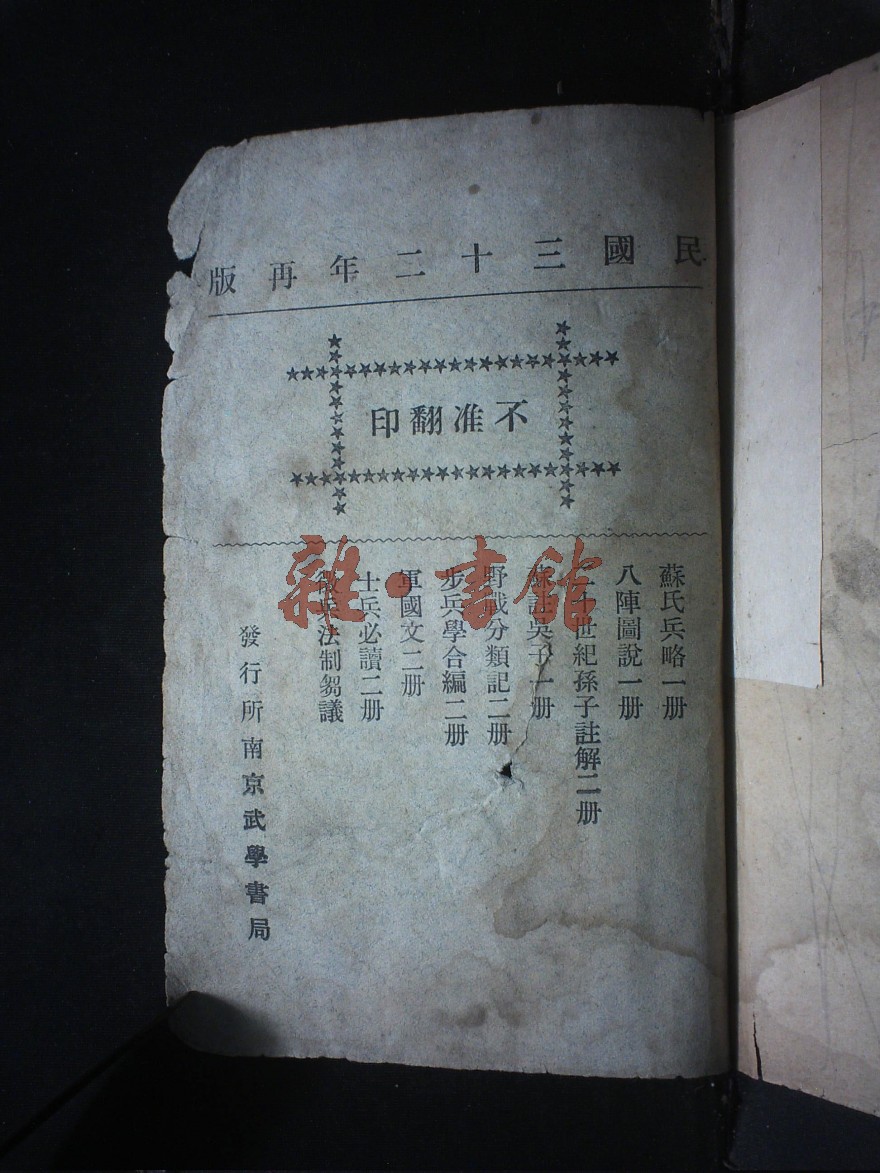 民國三十二年再版
不准翻印
蘇氏兵略一册
八陣圖說一册
二十世紀孫子註解二册
蘇註吳子一册
野戰分類記二册
步兵學合編二册
軍國文二册
士兵必讀二册
徵兵法制芻議
發行所南京武學書局
雜·書館